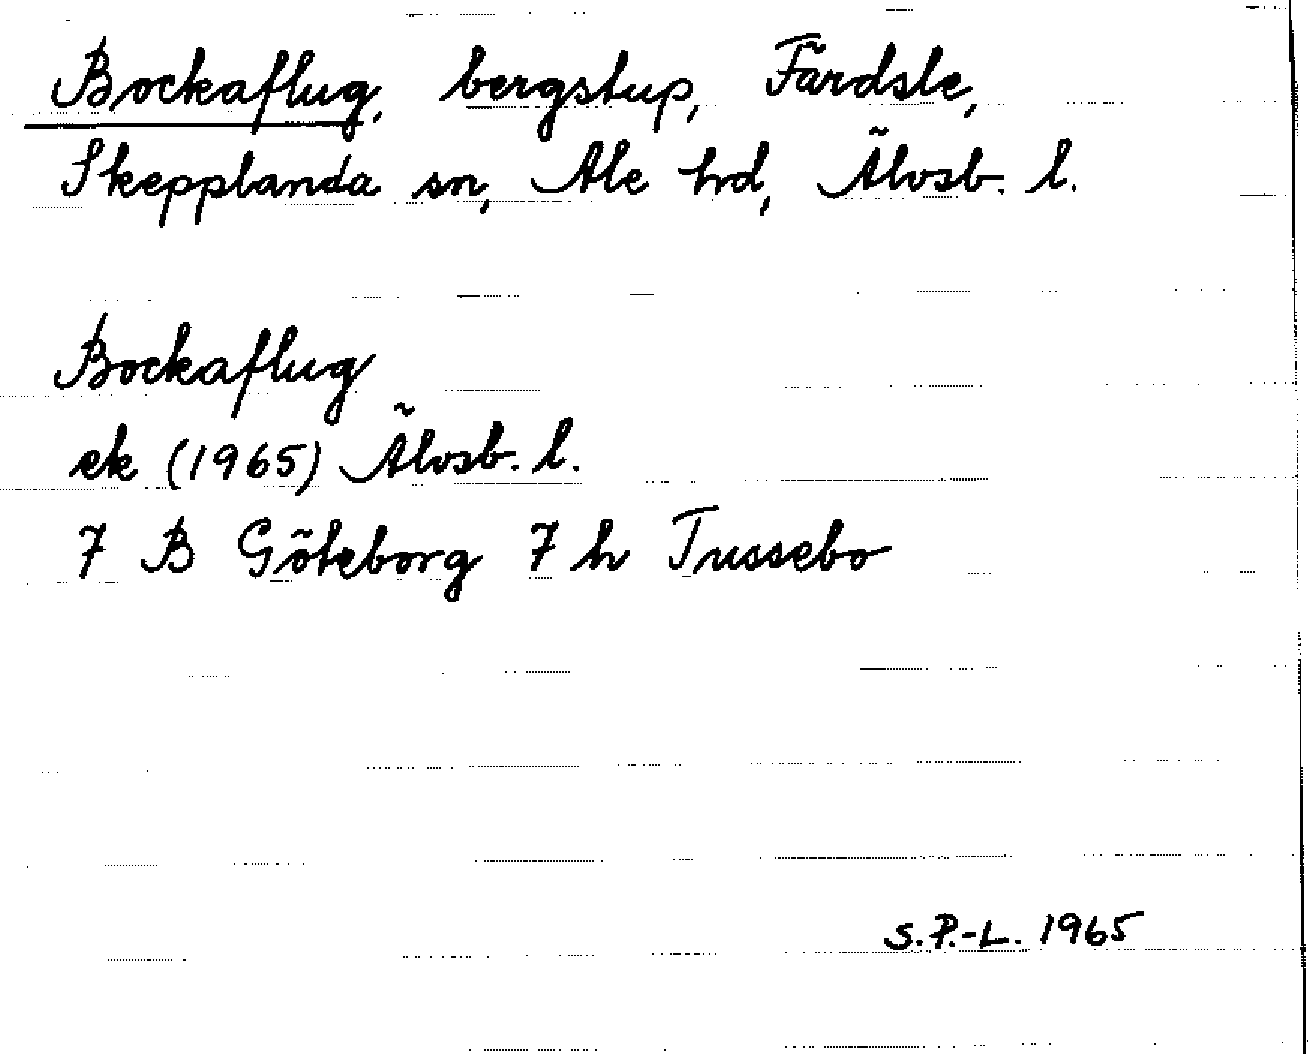 Bockaflug, bergstup, Färdsle,
Skepplanda sn, Ale hrd, Älvsb. l.
Bockaflug
ek (1965) Älvsb. l.
7 B Göteborg 7 h Tussebo
S.P.-L. 1965